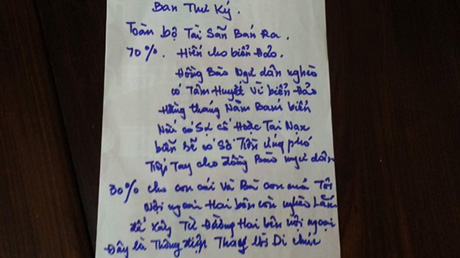 Ban Thư Ký
Toàn bộ Tài Sản Bán Ra.
70%. Hiến cho biển Đảo.
Đồng Bào Ngư dân nghèo
có Tâm Huyết Vì biển Đảo
Hằng tháng Năm Bám biển
Nếu có Sự cố Hoặc Tai Nạn
bên sẽ có Số Tiền ứng phó
Tiếp Tay cho Đồng Bào ngư dân
30% cho con cái Và Bà con của Tôi
Nội ngoại Hai bên còn nghèo Lắm
Để Xây Từ Đường Hai bên nội ngoại
Đây là Thông Điệp Thay Lời Di chúc